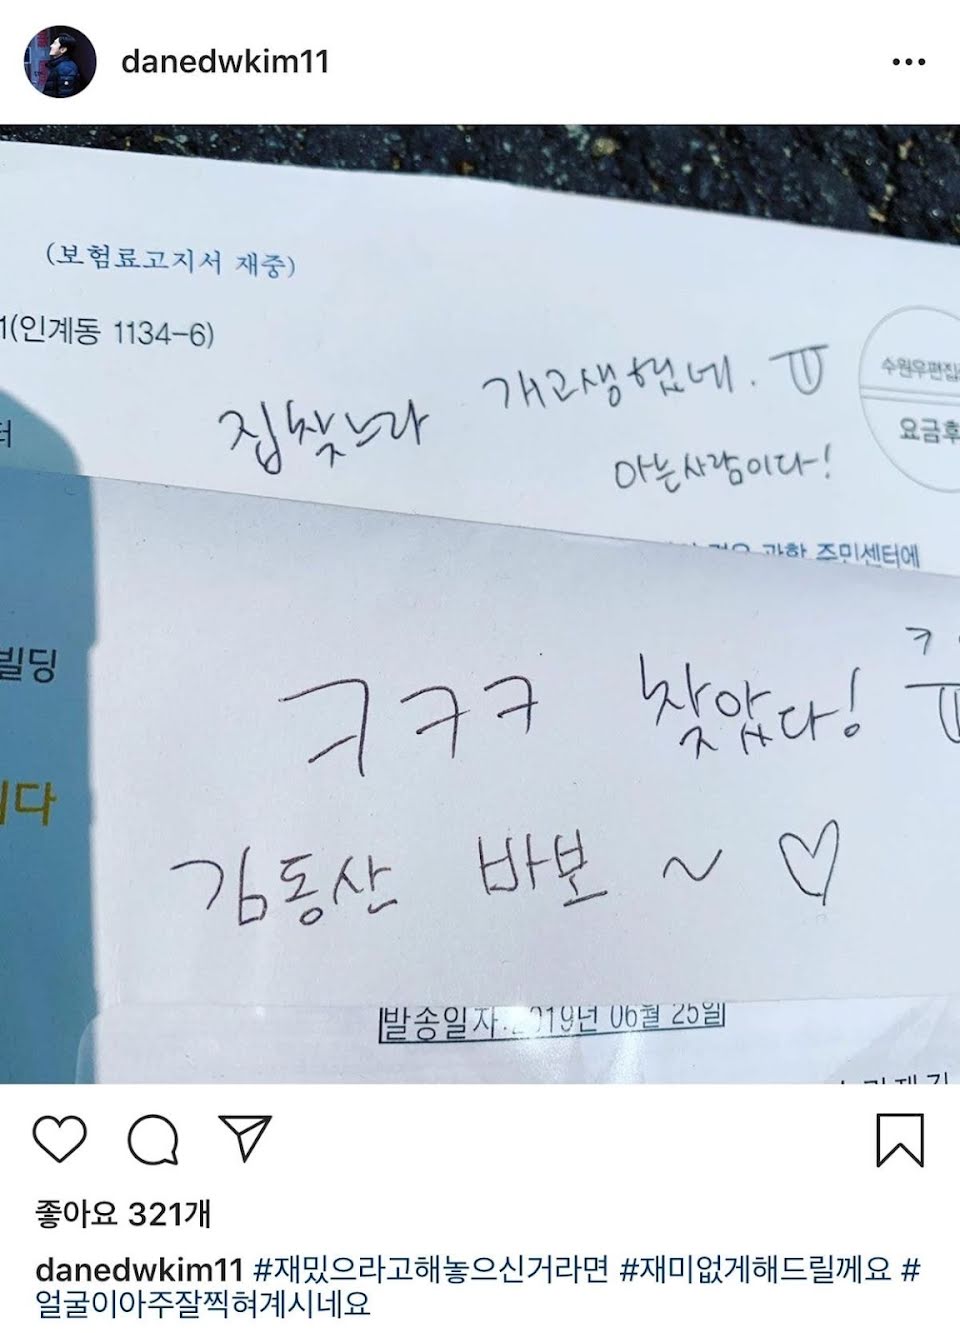 danedwkim11
(보험료고지서 재중)
1(인계동 1134-6)
집찾느라 개고생했네. ㅠ
아는사람이다!
수원우편집
요금후
터
경우 관할 주민센터에
빌딩
ㅋㅋㅋ 찾았다! ㅋ
ㅠ
니다
김동산 바보 ~ ♡
발송일자:2019년 06월 25일
좋아요 321개
danedwkim11 #재밌으라고해놓으신거라면 #재미없게해드릴께요 #
얼굴이아주잘찍혀계시네요